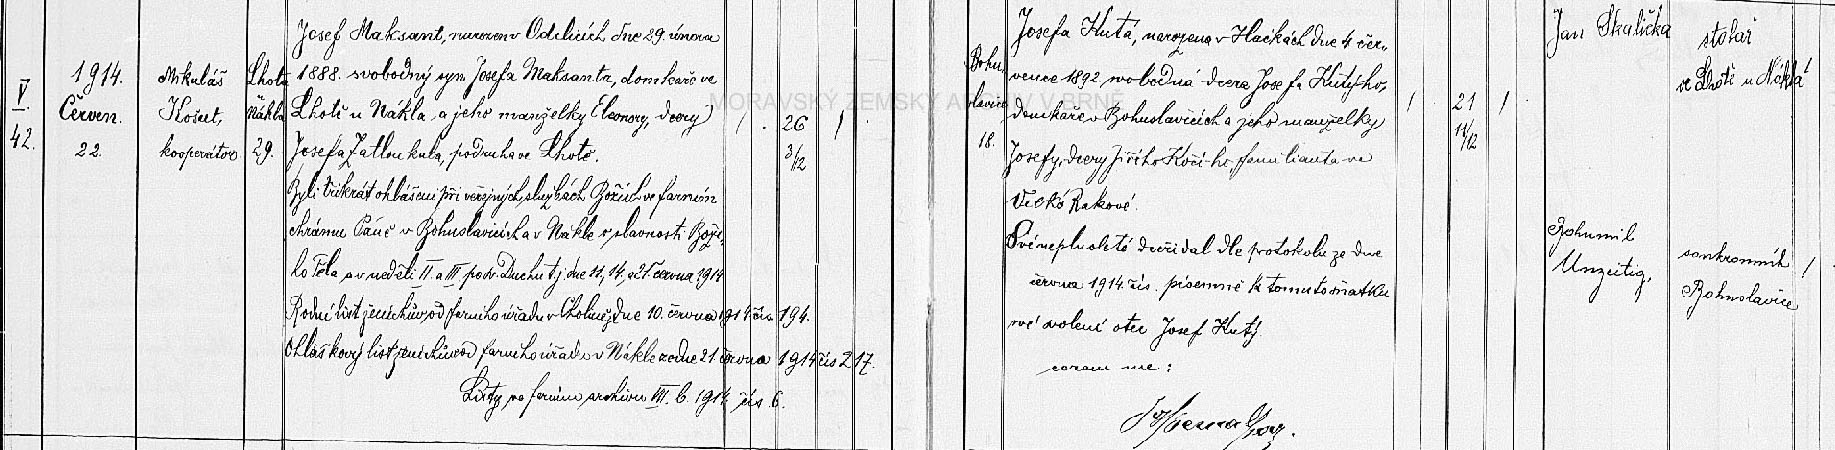 V.
42.
1914.
Červen.
22.
Mikuláš
Košut,
kooperátor
Lhota
Nákla
29.
Josef Maksant, narozen v Odrlicích dne 29. února
1888. svobodný syn Josefa Maksanta, domkaře ve
Lhotě u Nákla a jeho manželky Eleonory, dcery
Josefa Zatloukala, podruha ve Lhotě.
Byli třikrát ohlášeni při veřejných službách Božích ve farním
chrámu Páně v Bohuslavicích a v Nákle v slavnosti Boží-
ho Těla, a v neděli II. a III po sv. Duchu t.j. dne 11, 14, a 21 června 1914
Rodní list ženichův od farního úřadu v Cholině, dne 10. června 1914 čís. 194.
Ohláškový list ženichův od farního úřadu v Nákle ze dne 21 června 1914 čís 217.
Listy ve farním archivu VIII. b. 1914 čís. 6.
1 . 26 1 .
3/12
Bohu
slavice
18.
Josefa Hutá, narozena v Hačkách dne 4 čer-
vence 1892, svobodná dcera Josefa Hutýho,
domkáře v Bohuslavicích a jeho manželky
Josefy, dcery Jiřího Kočí-ho, familianta ve
Velké Rakové.
Své neplnoleté dceři dal dle protokolu ze dne
června 1914 čís. písemně k tomuto sňatku
své svolení otec Josef Hutý.
coram me:
1 . 21 1 .
11/12
Jan Skalička
stolař
ve Lhotě u Nákla
Bohumil
Unzeitig,
soukromník
Bohuslavice
1
MORAVSKÝ ZEMSKÝ ARCHIV V BRNĚ